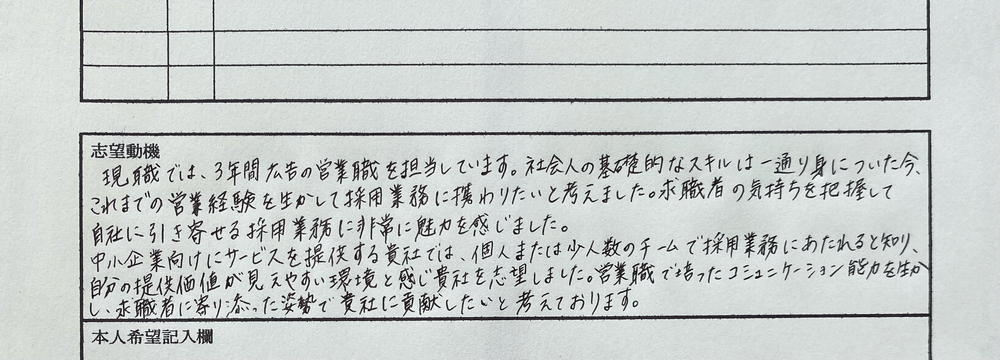 志望動機
現職では、3年間広告の営業職を担当しています。社会人の基礎的なスキルは一通り身についた今、
これまでの営業経験を生かして採用業務に携わりたいと考えました。求職者の気持ちを把握して
自社に引き寄せる採用業務に非常に魅力を感じました。
中小企業向けにサービスを提供する貴社では、個人または少人数のチームで採用業務にあたれると知り、
自分の提供価値が見えやすい環境と感じ貴社を志望しました。営業職で培ったコミュニケーション能力を生か
し、求職者に寄り添った姿勢で貴社に貢献したいと考えております。
本人希望記入欄